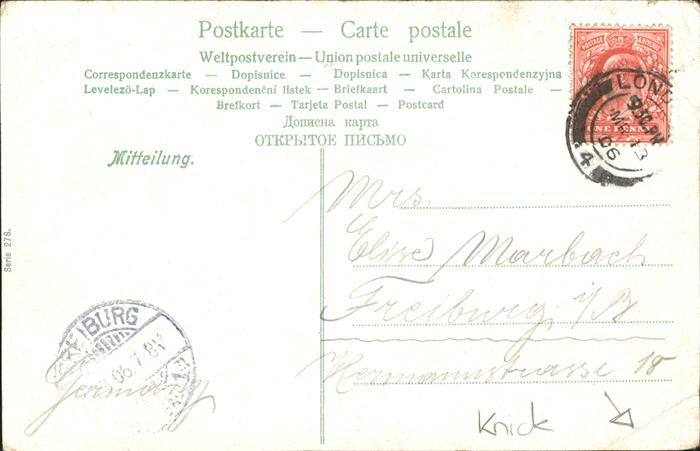 Postkarte — Carte postale
Weltpostverein — Union postale universelle
Correspondenzkarte — Dopisnice — Dopisnica — Karta Korespondenzyjna
Levelező-Lap — Korespondenční lístek — Briefkaart — Cartolina Postale —
Brefkort — Tarjeta Postal — Postcard
Дописна карта
ОТКРЫТОЕ ПИСЬМО
Mitteilung.
POSTAGE & REVENUE
ONE PENNY
LOND
MY 13
06
4
Mrs.
Elise Marbach
Freiburg i/B
Hermannstrasse 18
Serie 278.
FREIBURG
06. 7-8V
Germany
Knick